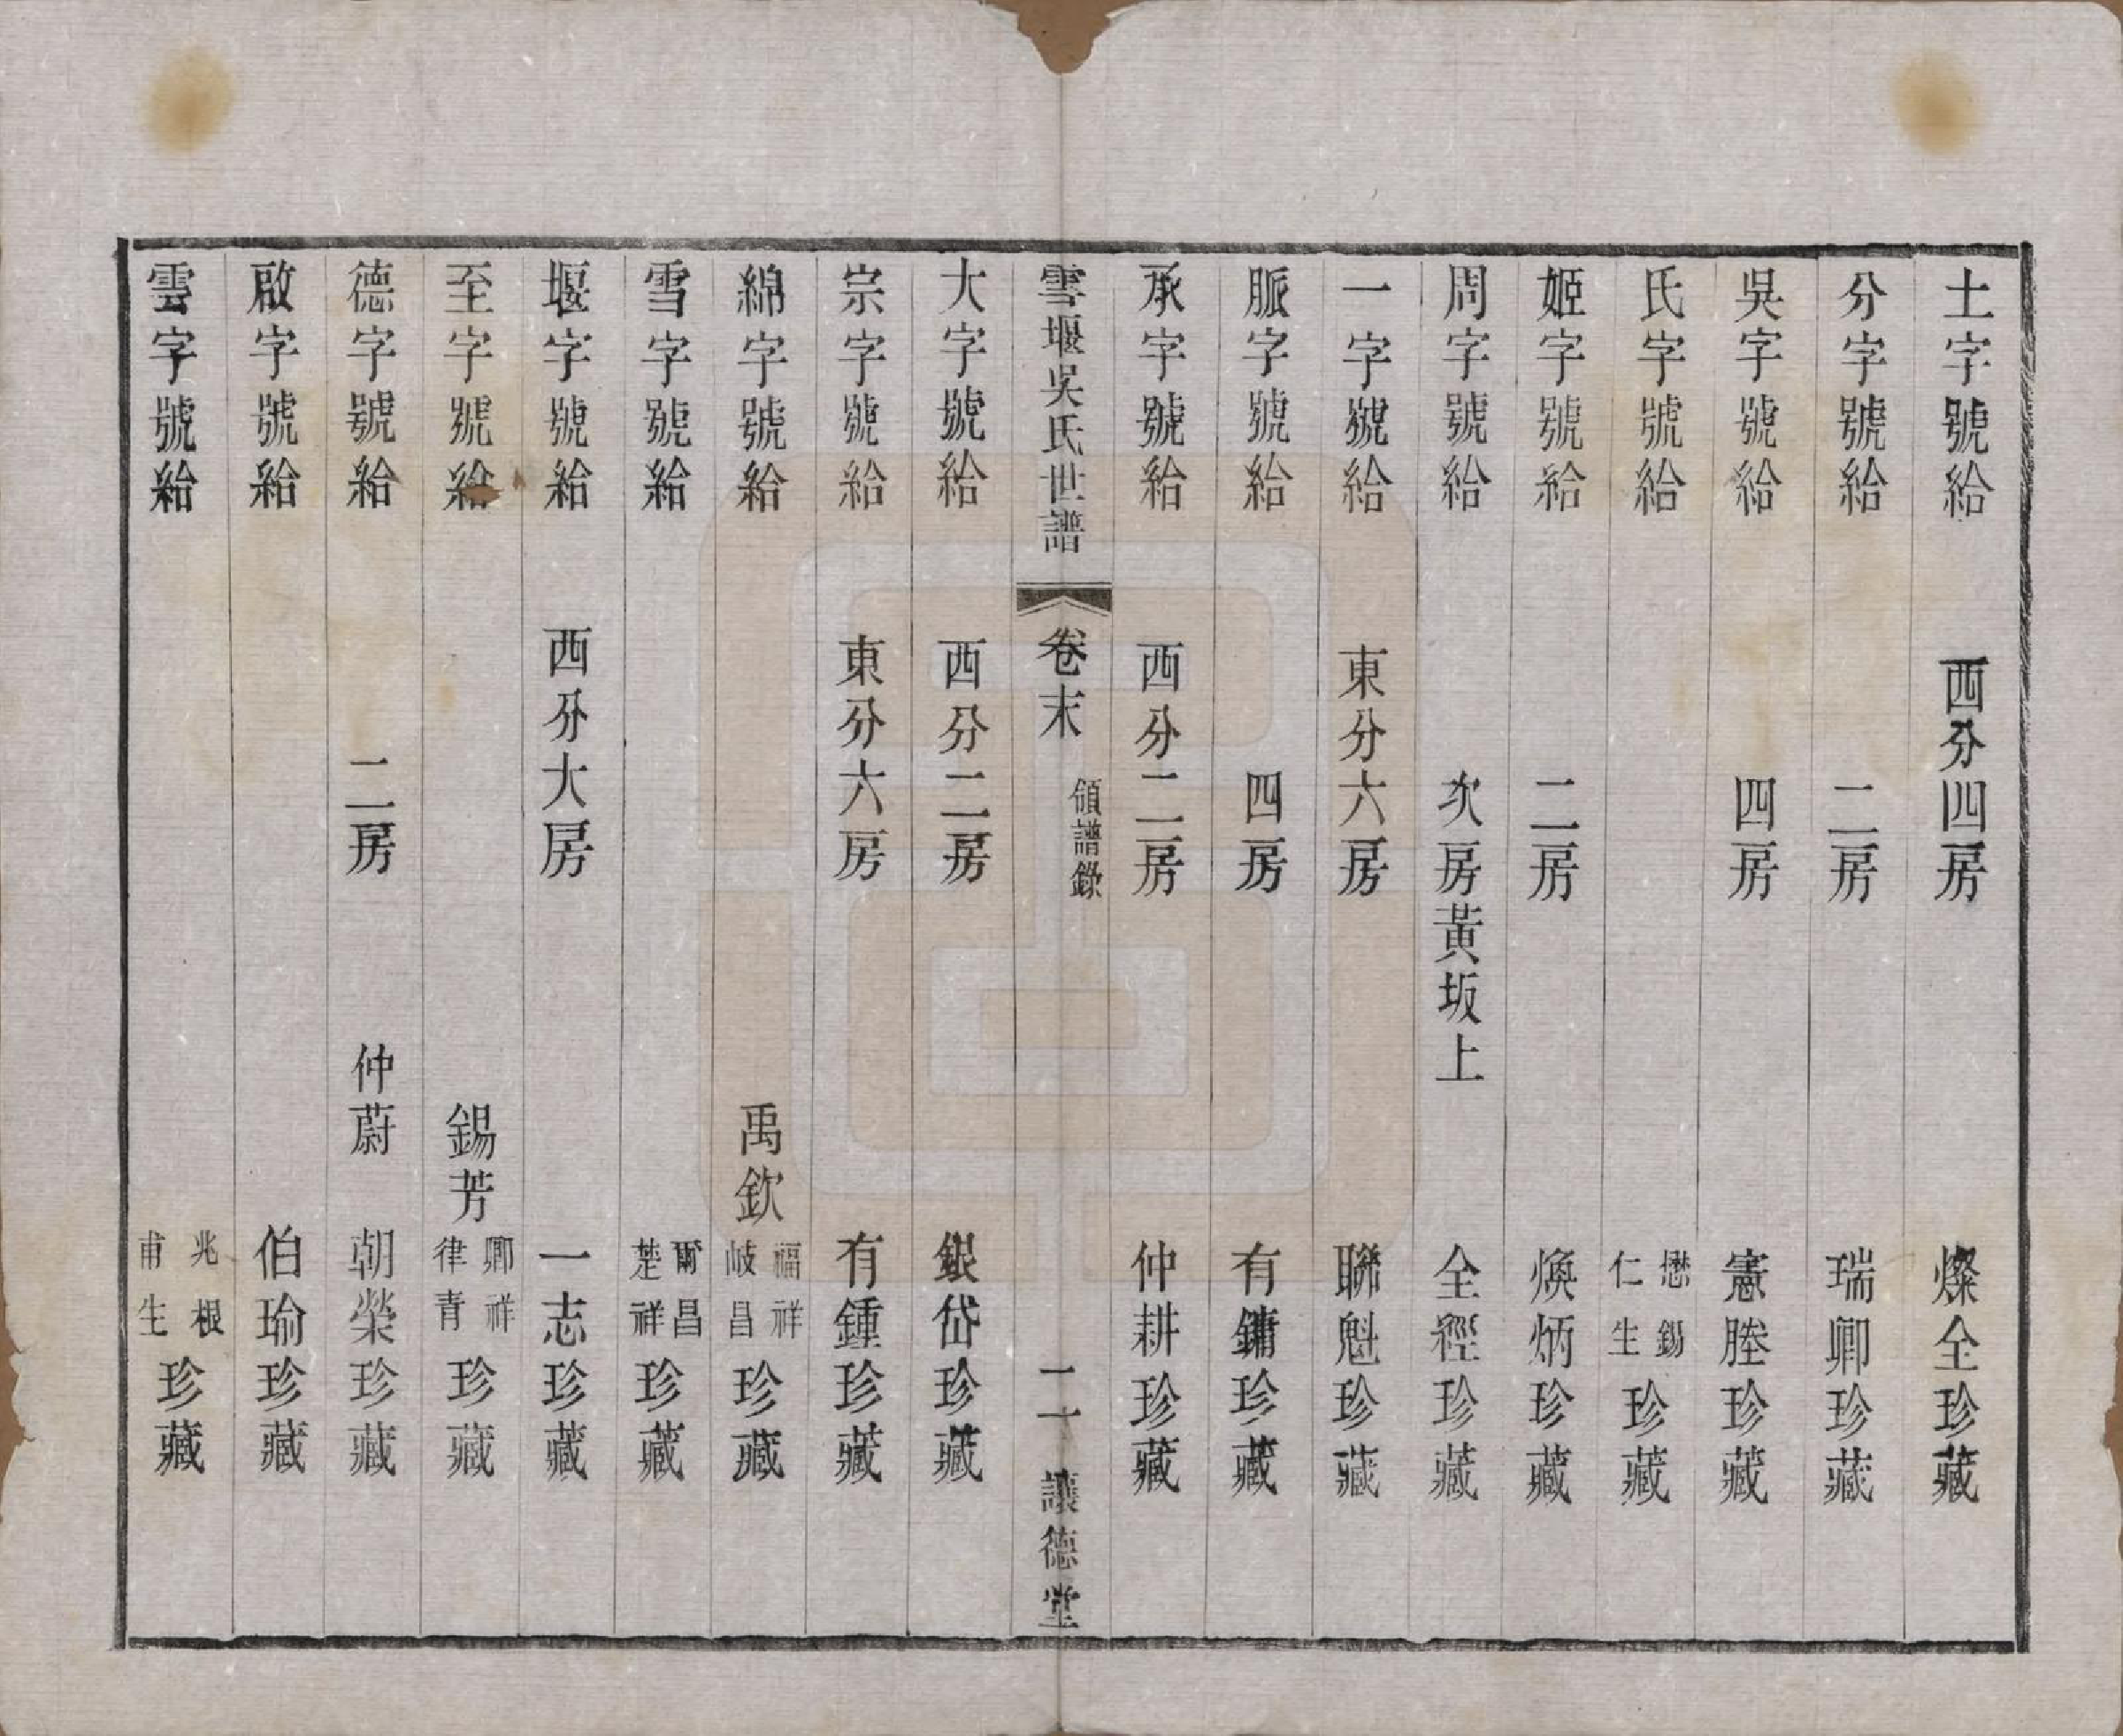 土字號給 西分四房 燦全珍藏
分字號給 二房 瑞卿珍藏
吳字號給 四房 憲塍珍藏
氏字號給 懋錫 仁生 珍藏
姬字號給 二房 煥炳珍藏
周字號給 次房黃坂上 全經珍藏
一字號給 東分六房 聯魁珍藏
脈字號給 四房 有鏞珍藏
承字號給 西分二房 仲耕珍藏
雲堰吳氏世譜 卷末 領譜錄 二 讓德堂
大字號給 西分二房 銀岱珍藏
宗字號給 東分六房 有鍾珍藏
綿字號給 禹欽 福祥 岐昌 珍藏
雪字號給 爾昌 楚祥 珍藏
堰字號給 西分大房 一志珍藏
至字號給 錫芳 卿祥 律青 珍藏
德字號給 二房 仲蔚 朝榮珍藏
啟字號給 伯瑜珍藏
雲字號給 兆根 甫生 珍藏